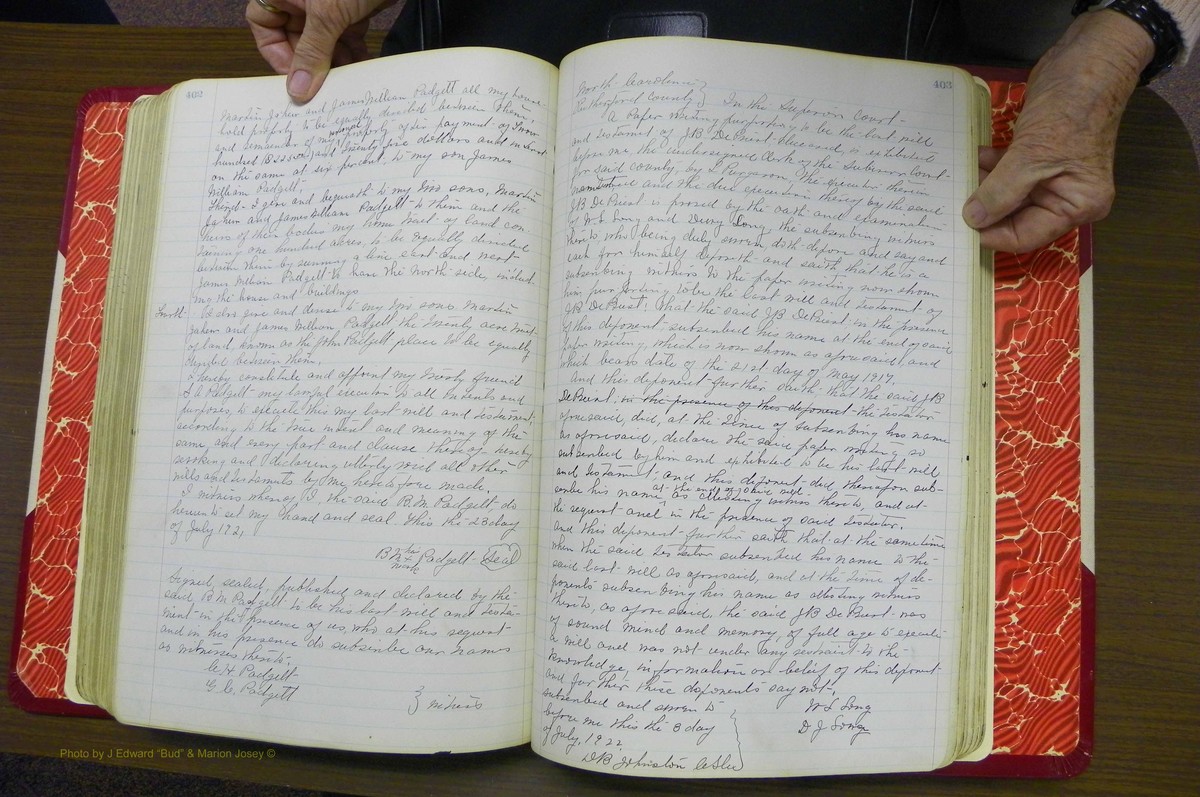 402
Martin Jaken and James William Padgett all my house-
hold property to be equally divided between them,
and remainder of my personal property after payment of
hundred and twenty five dollars and interest
on the same at six percent to my son James
William Padgett.
Third- I give and bequeath to my two sons, Martin
Jaken and James William Padgett to them and the
heirs of their bodies my home tract of land con-
taining one hundred acres, to be equally divided
between them by running a line east and west
James William Padgett to have the North side, includ-
ing the house and buildings
Fourth- I also give and devise to my two sons Martin
Jaken and James William Padgett the twenty acre tract
of land, known as the John Padgett place to be equally
divided between them.
I hereby constitute and appoint my trusty friend
Padgett my lawful executor to all intents and
purposes, to execute this my last will and testament,
according to the true intent and meaning of the
same and every part and clause thereof hereby
revoking and declaring utterly void all other
wills and testaments by me heretofore made.
In witness whereof I the said B.M. Padgett do
hereunto set my hand and seal this the 28 day
of July, 1921
B.M. his mark Padgett (Seal)
Signed, sealed, published and declared by the
said B.M. Padgett to be his last will and testa-
ment in the presence of us, who at his request
and in his presence do subscribe our names
as witnesses thereto.
C.H. Padgett
G.C. Padgett } witness
403
North Carolina }
Rutherford County } In the Superior Court-
A Paper writing purporting to be the last will
and testament of J.B. DePriest deceased, is exhibited
before me, the undersigned Clerk of the Superior Court
for said county, by the executor therein
named and the due execution thereof by the said
J.B. DePriest is proved by the oath and examination
of W.L. Long and Long the subscribing witness
thereto who being duly sworn doth depose and say and
each for himself deposeth and saith, that he is a
subscribing witness to the paper writing now shown
him, purporting to be the last will and testament of
J.B. DePriest; that the said J.B. DePriest in the presence
of this deponent, subscribed his name at the end of said
paper writing, which is now shown as aforesaid, and
which bears date of the 21st. day of May 1919.
and this deponent further saith, that the said J.B.
DePriest in the presence of this deponent the testator
aforesaid, did, at the time of subscribing his name
as aforesaid, declare the said paper writing so
subscribed by him and exhibited to be his last will
and testament; and this deponent did thereupon sub-
scribe his name, at the end of said will as attesting witness thereto, and at
the request and in the presence of said testator.
and this deponent further saith that at the same time
when the said testator subscribed his name to the
said last will as aforesaid, and at the time of de-
ponents subscribing his name as attesting witness
thereto, as aforesaid, the said J.B. DePriest was
of sound mind and memory, of full age to execute
a will and was not under any restraint to the
knowledge, information or belief of this deponent
and further these deponents say not,
subscribed and sworn to
before me this the 8 day
of July, 1922
W L Long
D J Long
Johnston
Photo by J Edward "Bud" & Marion Josey ©